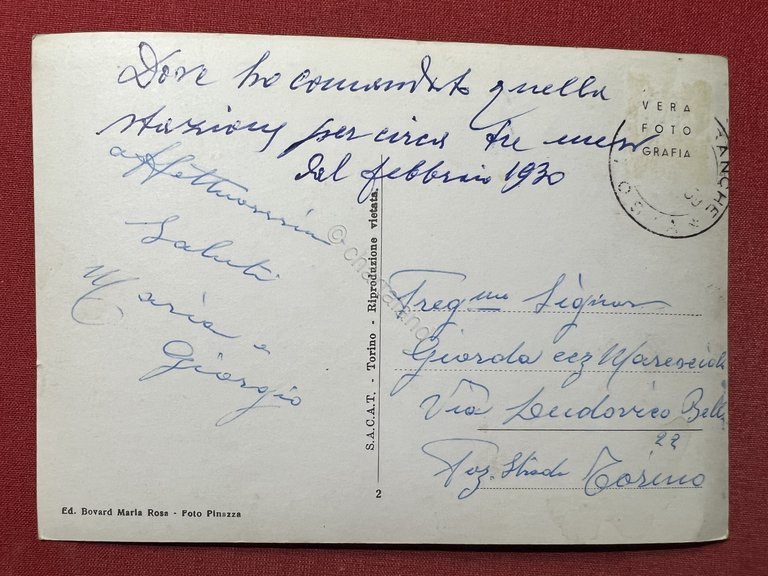 Dove ho comandato quella
stazione per circa tre mesi
dal febbraio 1930
affettuosissimi
saluti
Maria e
Giorgio
VERA
FOTO
GRAFIA
S.A.C.A.T. - Torino - Riproduzione vietata
Preg.mo Signor
Giorda Maresciall
Via Ludovico Bell
22
Poz. Strada Torino
2
Ed. Bovard Maria Rosa - Foto Pinazza